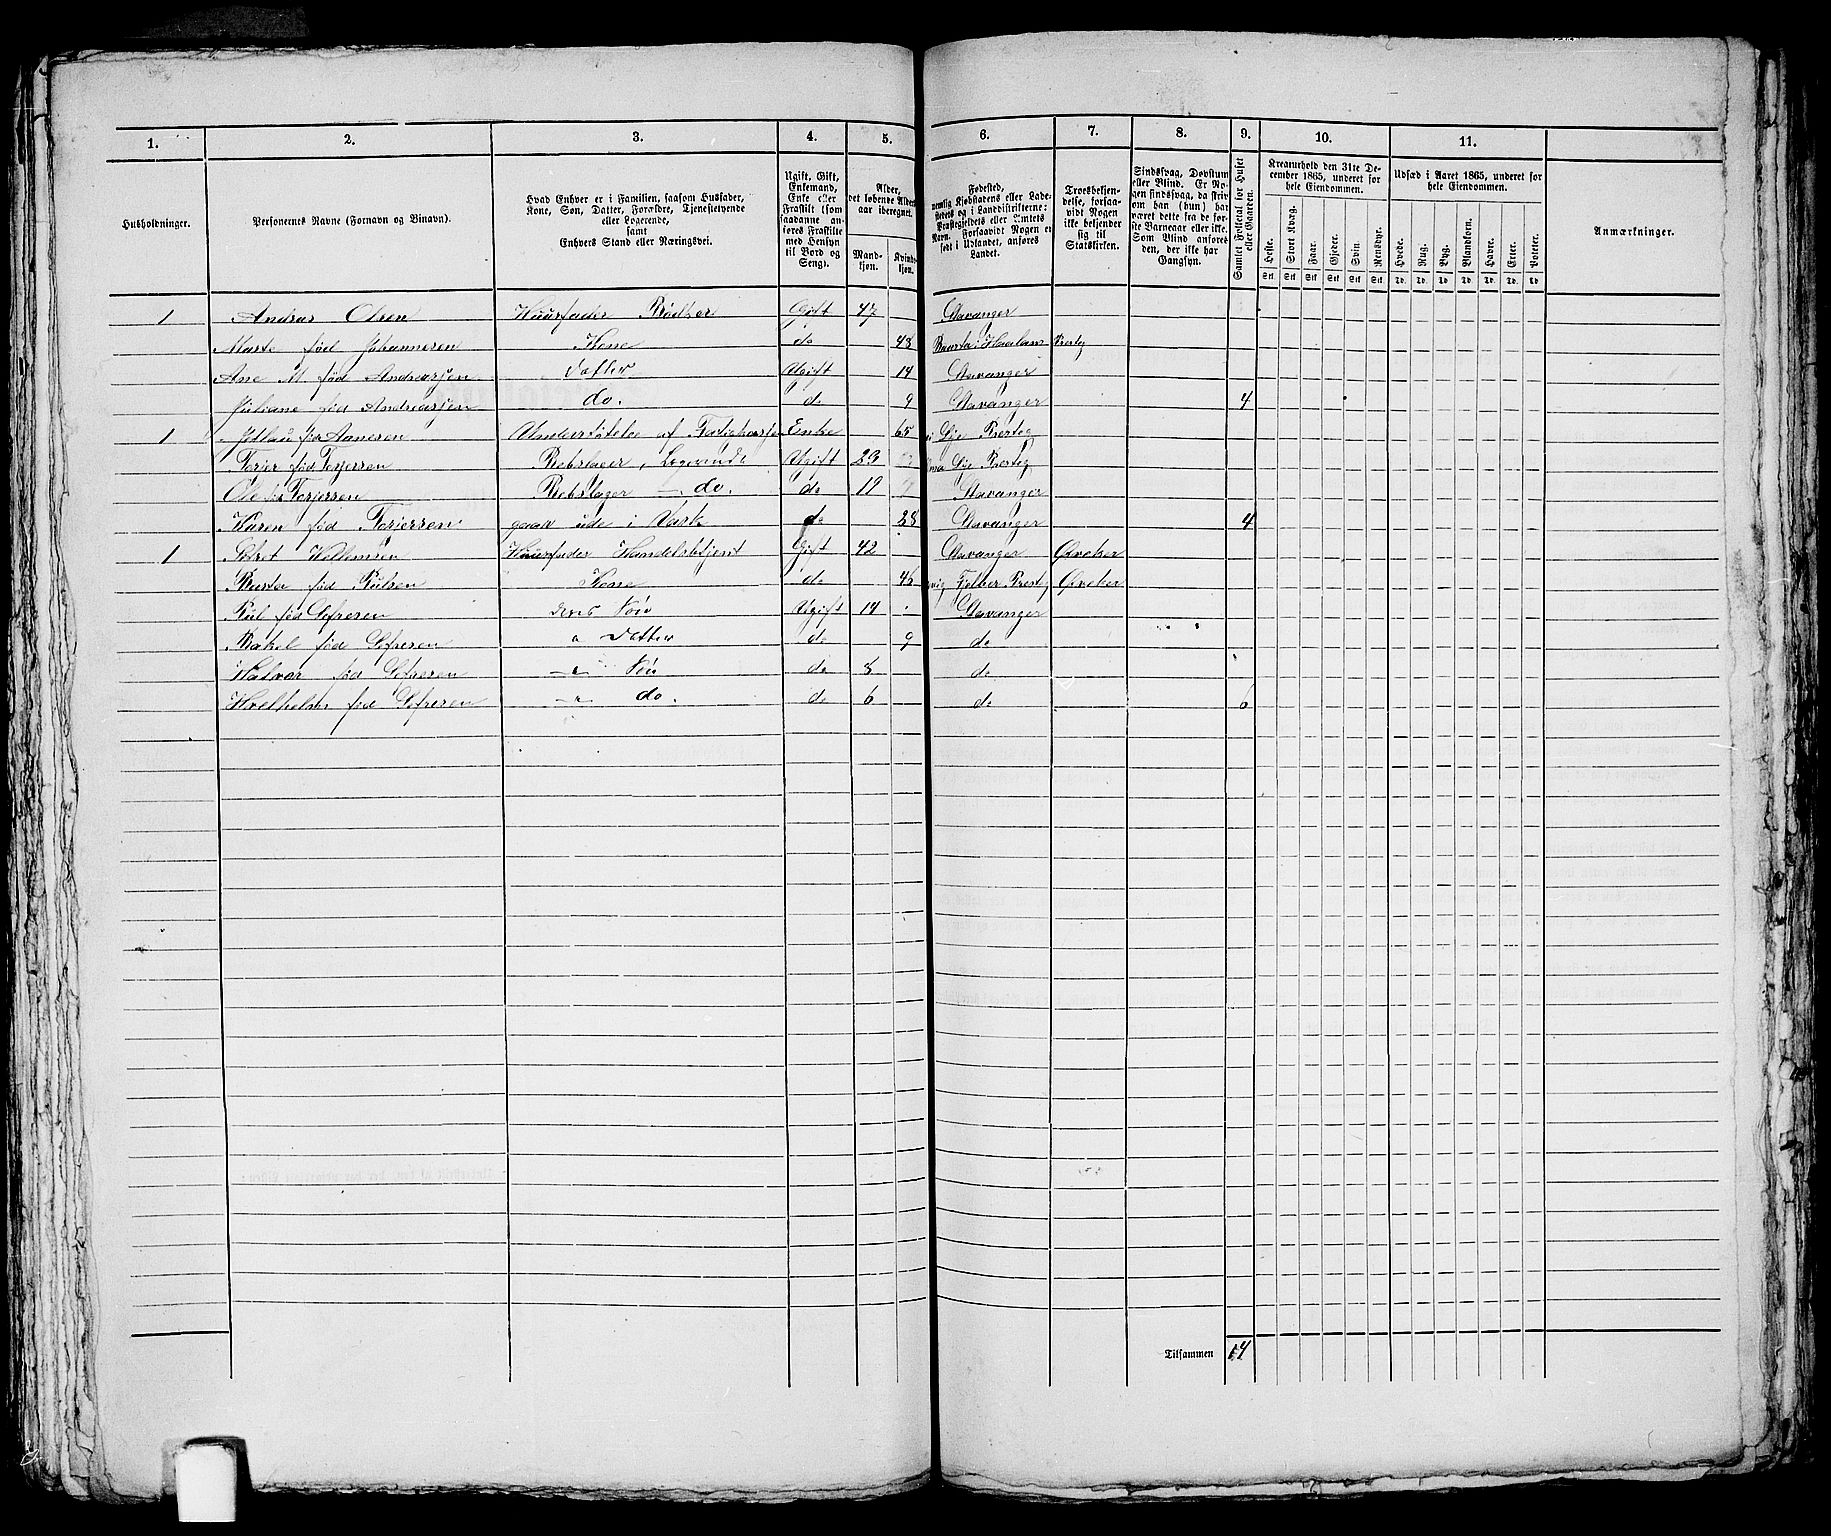 1. 2. 3. 4. 5. 6. 7. 8. 9. 10. 11.
Husholdninger.
Personernes Navne (Fornavn og Binavn).
Hvad Enhver er i Familien, saasom Husfader,
Kone, Søn, Datter, Forældre, Tjenestetyende
eller Logerende,
samt
Enhvers Stand eller Næringsvei.
Ugift, Gift,
Enkemand,
Enke eller
Fraskilt (som
saadanne an-
føres Fraskilte
med Hensyn
til Bord og
Seng).
Alder,
det løbende Alders-
aar iberegnet.
Mand-
kjøn.
Kvinde-
kjøn.
Fødested,
nemlig Kjøbstadens eller Lade-
stedets og i Landdistrikterne:
Præstegjeldets eller Amtets
Navn. Forsaavidt Nogen er
født i Udlandet, anføres
Landet.
Troesbekjen-
delse, forsaa-
vidt Nogen
ikke bekjender
sig til
Statskirken.
Sindssvag, Døvstum
eller Blind. Er No-
gen sindssvag, da skriv
om han (hun) har
været dette fra de før-
ste Barneaar eller ikke.
Som Blind anføres
den, der ikke har
Gangsyn.
Samlet Folketal for Huset
eller Gaarden.
Kreaturhold den 31te De-
cember 1865, underet for
hele Eiendommen.
Heste. Stort Kvæg. Faar. Gjeder. Svin. Rensdyr.
Stk Stk Stk Stk Stk Stk
Udsæd i Aaret 1865, underet for
hele Eiendommen.
Hvede. Rug. Byg. Blandkorn. Havre. Erter. Poteter.
Td. Td. Td Td. Td. Td. Td
Anmærkninger.
1 Andras Olsen Huusfader Bødker Gift 47 Stavanger
Marte fød Johannesen Kone do 48 Haaland Præsteg
Ane M. fød Andreasjen Datter Ugift 14 Stavanger
Juliane fød Andreasjen do. do 9 Stavanger 4
1 fød Aanesen Understøttelse af Enke 65 Præsteg
Torjer fød Torjersen Rebslager, Logerende Ugift 23 Præsteg
Ole fød Torjersen Rebslager — do. do 19 Stavanger
Karen fød Torjersen gaar ude i Vask do 28 Stavanger 4
1 Huusfader Handelsbetjent Gift 42 Stavanger Qvæker
fød Kone do 46 Præsteg Qvæker
fød Sefresen deres Søn Ugift 14 Stavanger
Rakel fød Sefresen " Datter do 9 do
Halvor fød Sefresen — " — Søn do 8 do
fød Sefresen — " do. do 6 do 6
Tilsammen 14